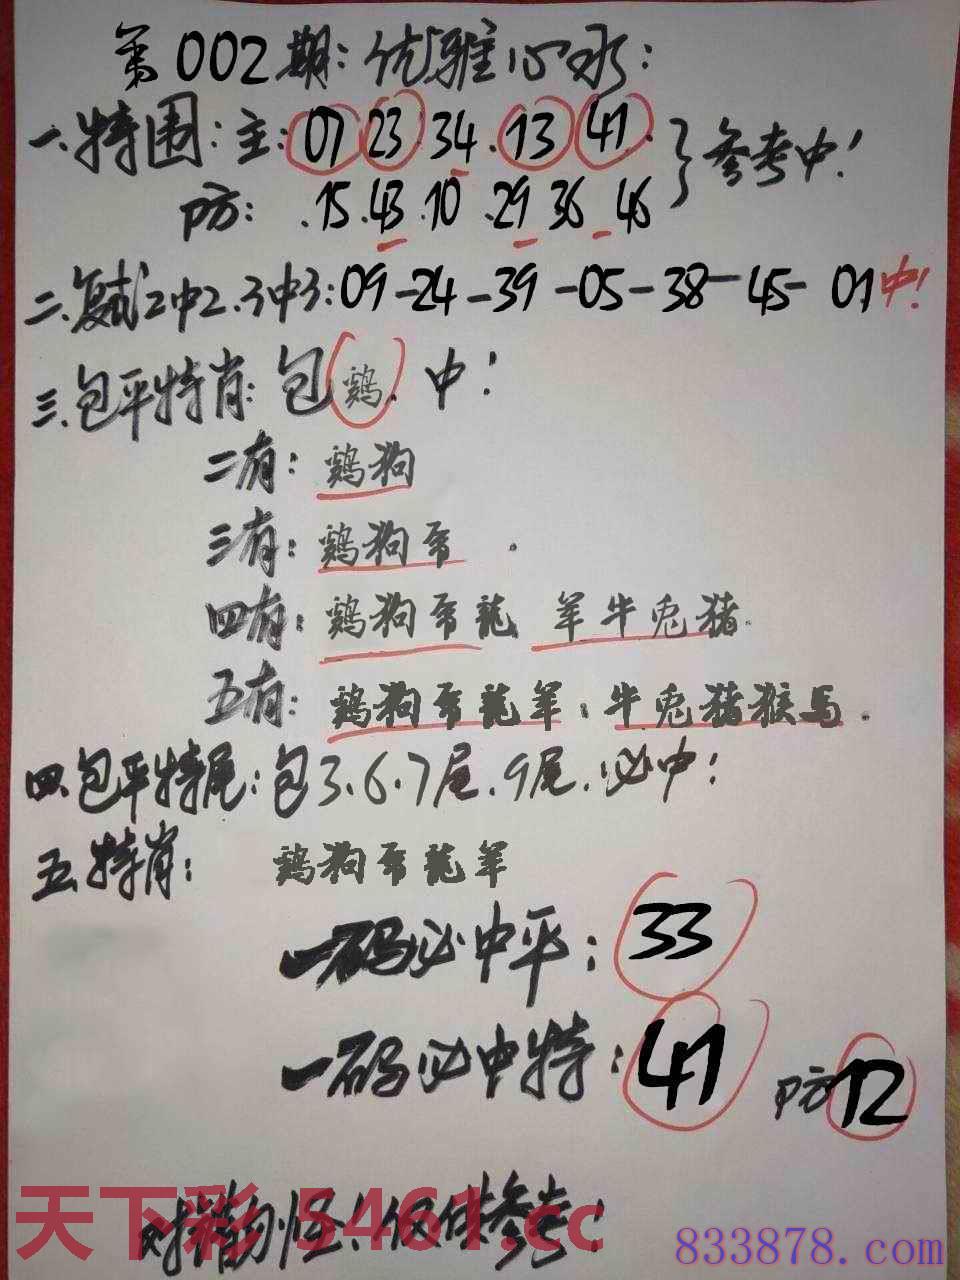 第002期:优雅心水:
一.特围:主:07 23 34.13 41.
防:.15.43.10.29 36 46
参考中!
二.复式2中2.3中3:09-24-39-05-38-45-01中!
三.包平特肖:包鸡.中!
二有:鸡狗
三有:鸡狗帝.
四有:鸡狗帝龍 羊牛兎猪.
五有:鸡狗帝龍羊:牛兎猪猴馬.
四.包平特尾:包3.6.7尾.9尾.必中!
五.特肖:鸡狗帝龍羊
一码必中平:33
一码必中特:41 防12
天下彩 5461.cc
仅供参考!
833878.com